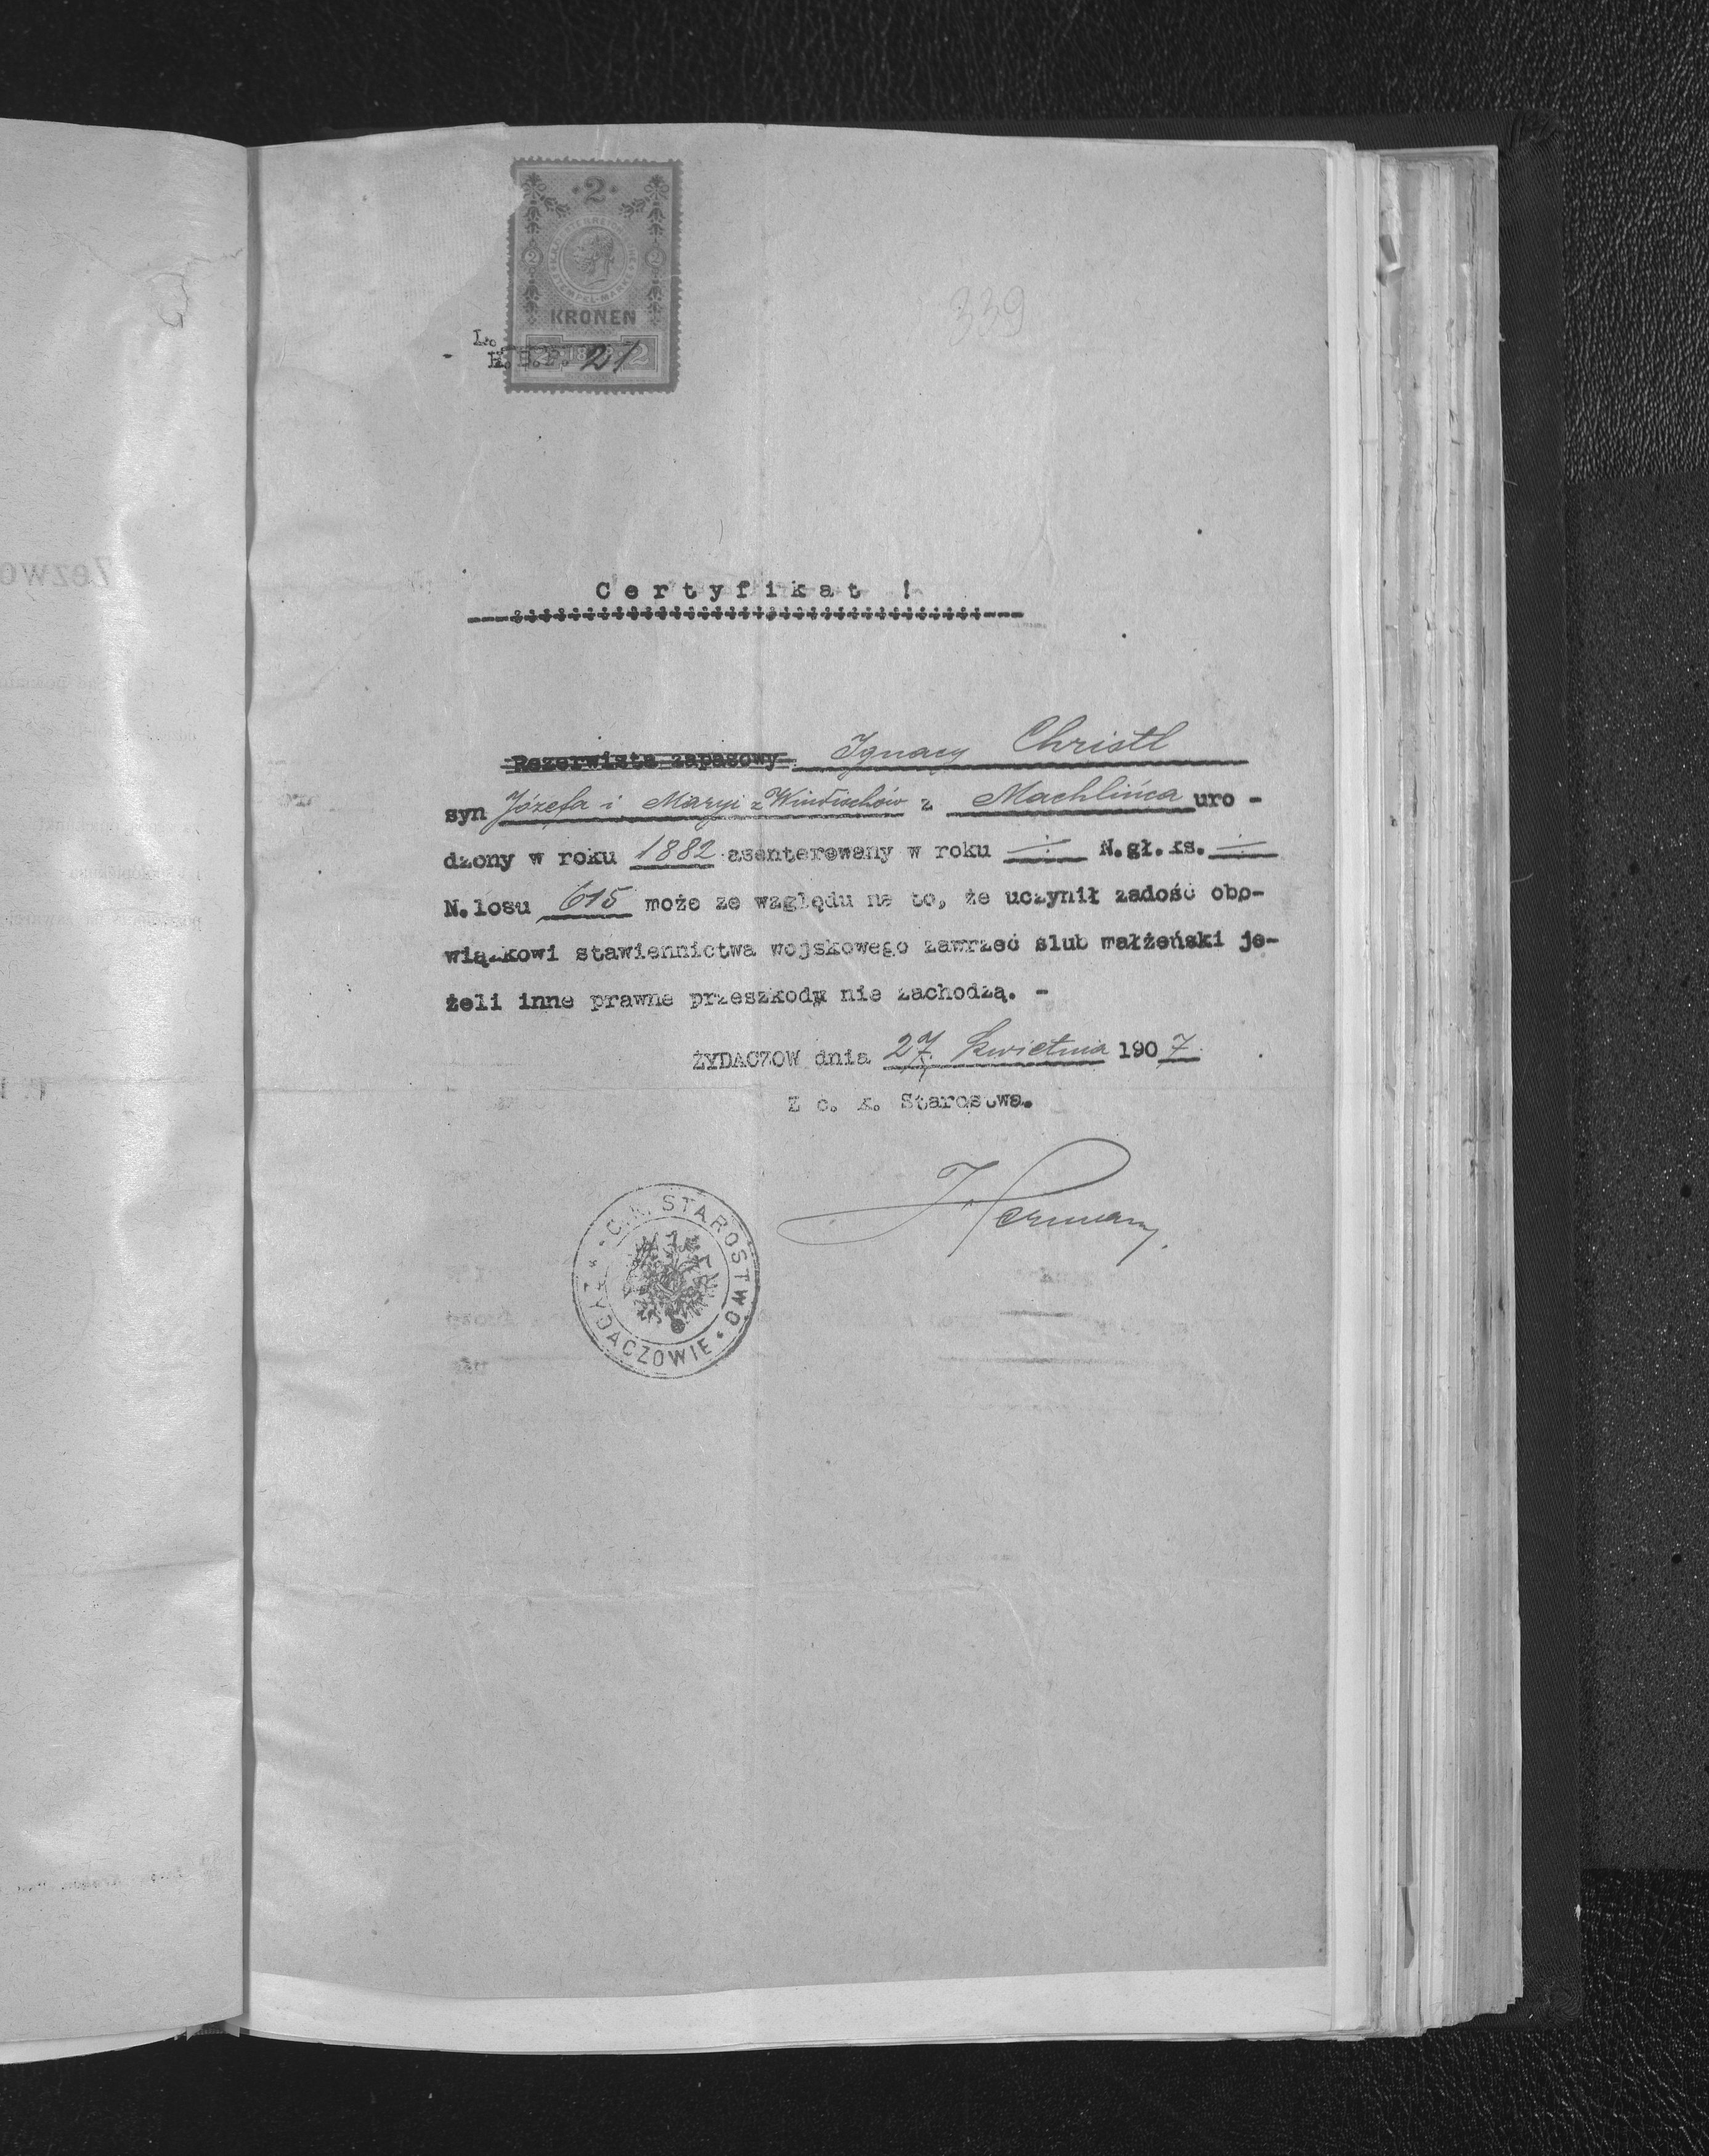 2
KRONEN
339
L.
H.B.P. 21
Certyfikat !
Rezerwista zapasowy Ignacy Christl
syn Józefa i Maryi z Windischów z Machlińca uro -
dzony w roku 1882 asenterowany w roku ÷ N.gł.ks. ÷
N.losu 615 może ze względu na to, że uczynił zadość obo-
wiązkowi stawiennictwa wojskowego zawrzeć ślub małżeński je-
żeli inne prawne przeszkody nie zachodzą. -
ŻYDACZOW dnia 27. kwietnia 1907.
Z c. k. Starostwa.
C.K. STAROSTWO
W ŻYDACZOWIE